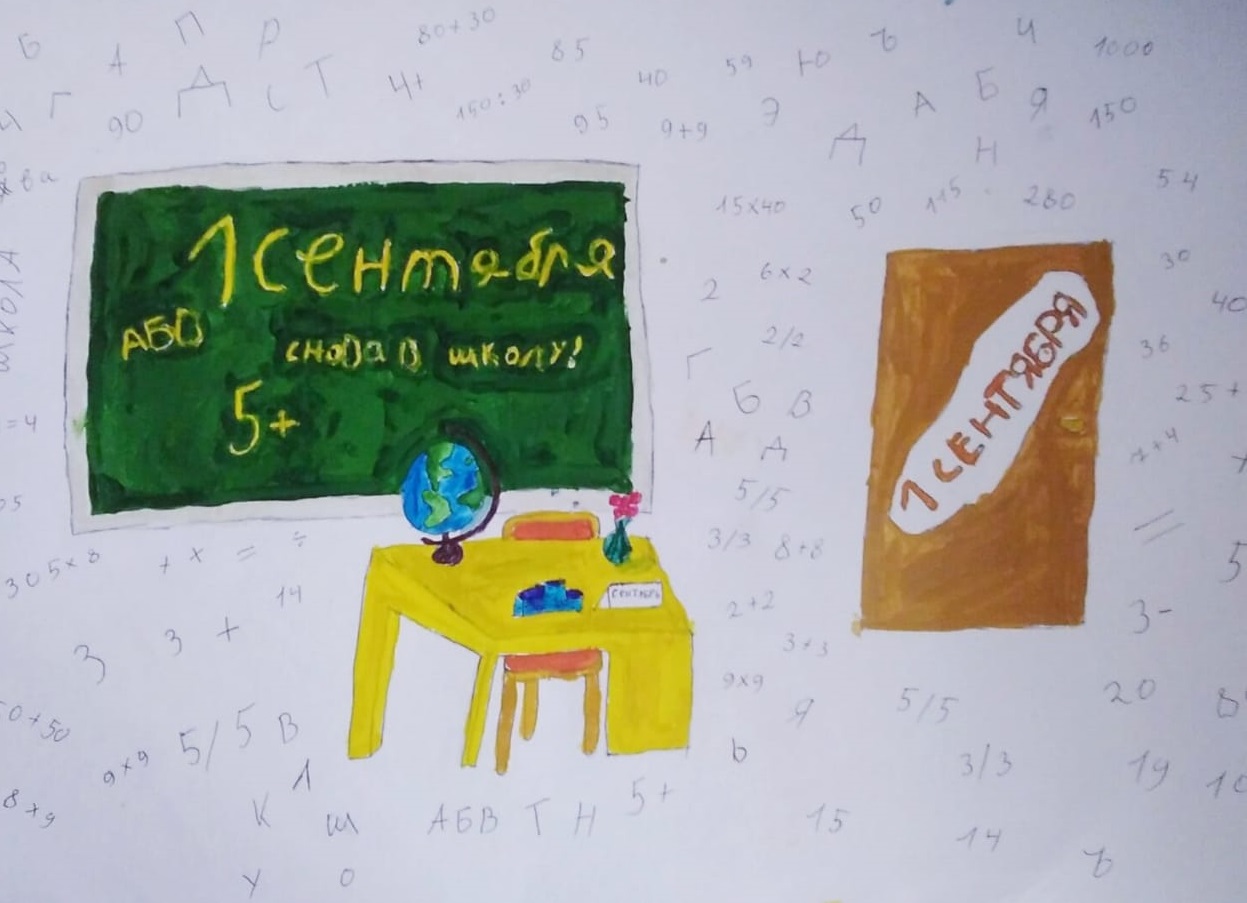 Б А П Р 80+30 85 40 59 Ю Ъ Ч 1000
Г Д С Т 4+ 150:30 95 9+9 Э А Б Я 150
90 Д Н
15×40 50 115 280 54
1 сентября
АБВ снова в школу!
5+
ШКОЛА
2 6×2 30
2/2 40
Г 36
Б В 25+
А Д
=4
1 СЕНТЯБРЯ
5/5
3/3 8+8
305×8 + × = ÷ 5
14
СЕНТЯБРЬ
2+2 3-
3 3 + 3+3
9×9 Я 5/5 20
9×9 5/5 В
Ь 3/3 19 10
8+9 Л
К Ш АБВ Т Н 5+ 15 14
У О Ъ